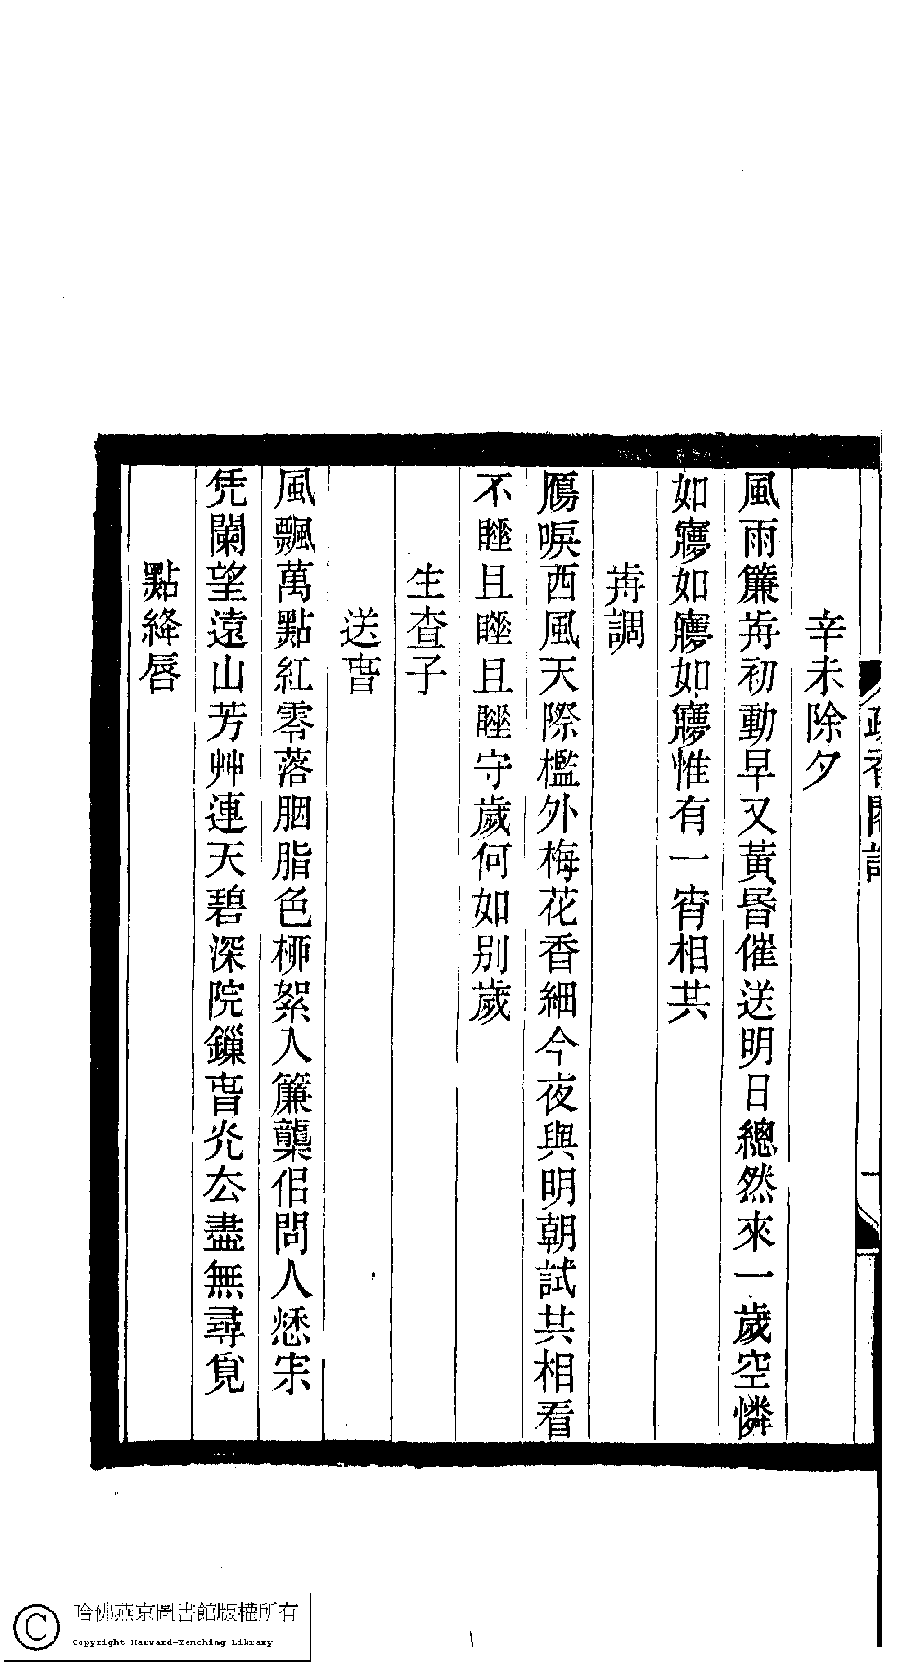 疏香閣詞
辛未除夕
風雨簾歬初動早又黃昬催送明日總然來一歲空憐
如㝱如㝱如㝱惟有一宵相共
歬調
鴈唳西風天際檻外梅花香細今夜與明朝試共相看
不睡且睡且睡守歲何如別歲
生查子
送旾
風飄萬點紅零落胭脂色柳絮入簾櫳佀問人愁宋
凭闌望遠山芳艸連天碧深院鏁旾灮厺盡無尋覓
點絳唇
哈佛燕京圖書館版權所有
Copyright Harvard-Yenching Library